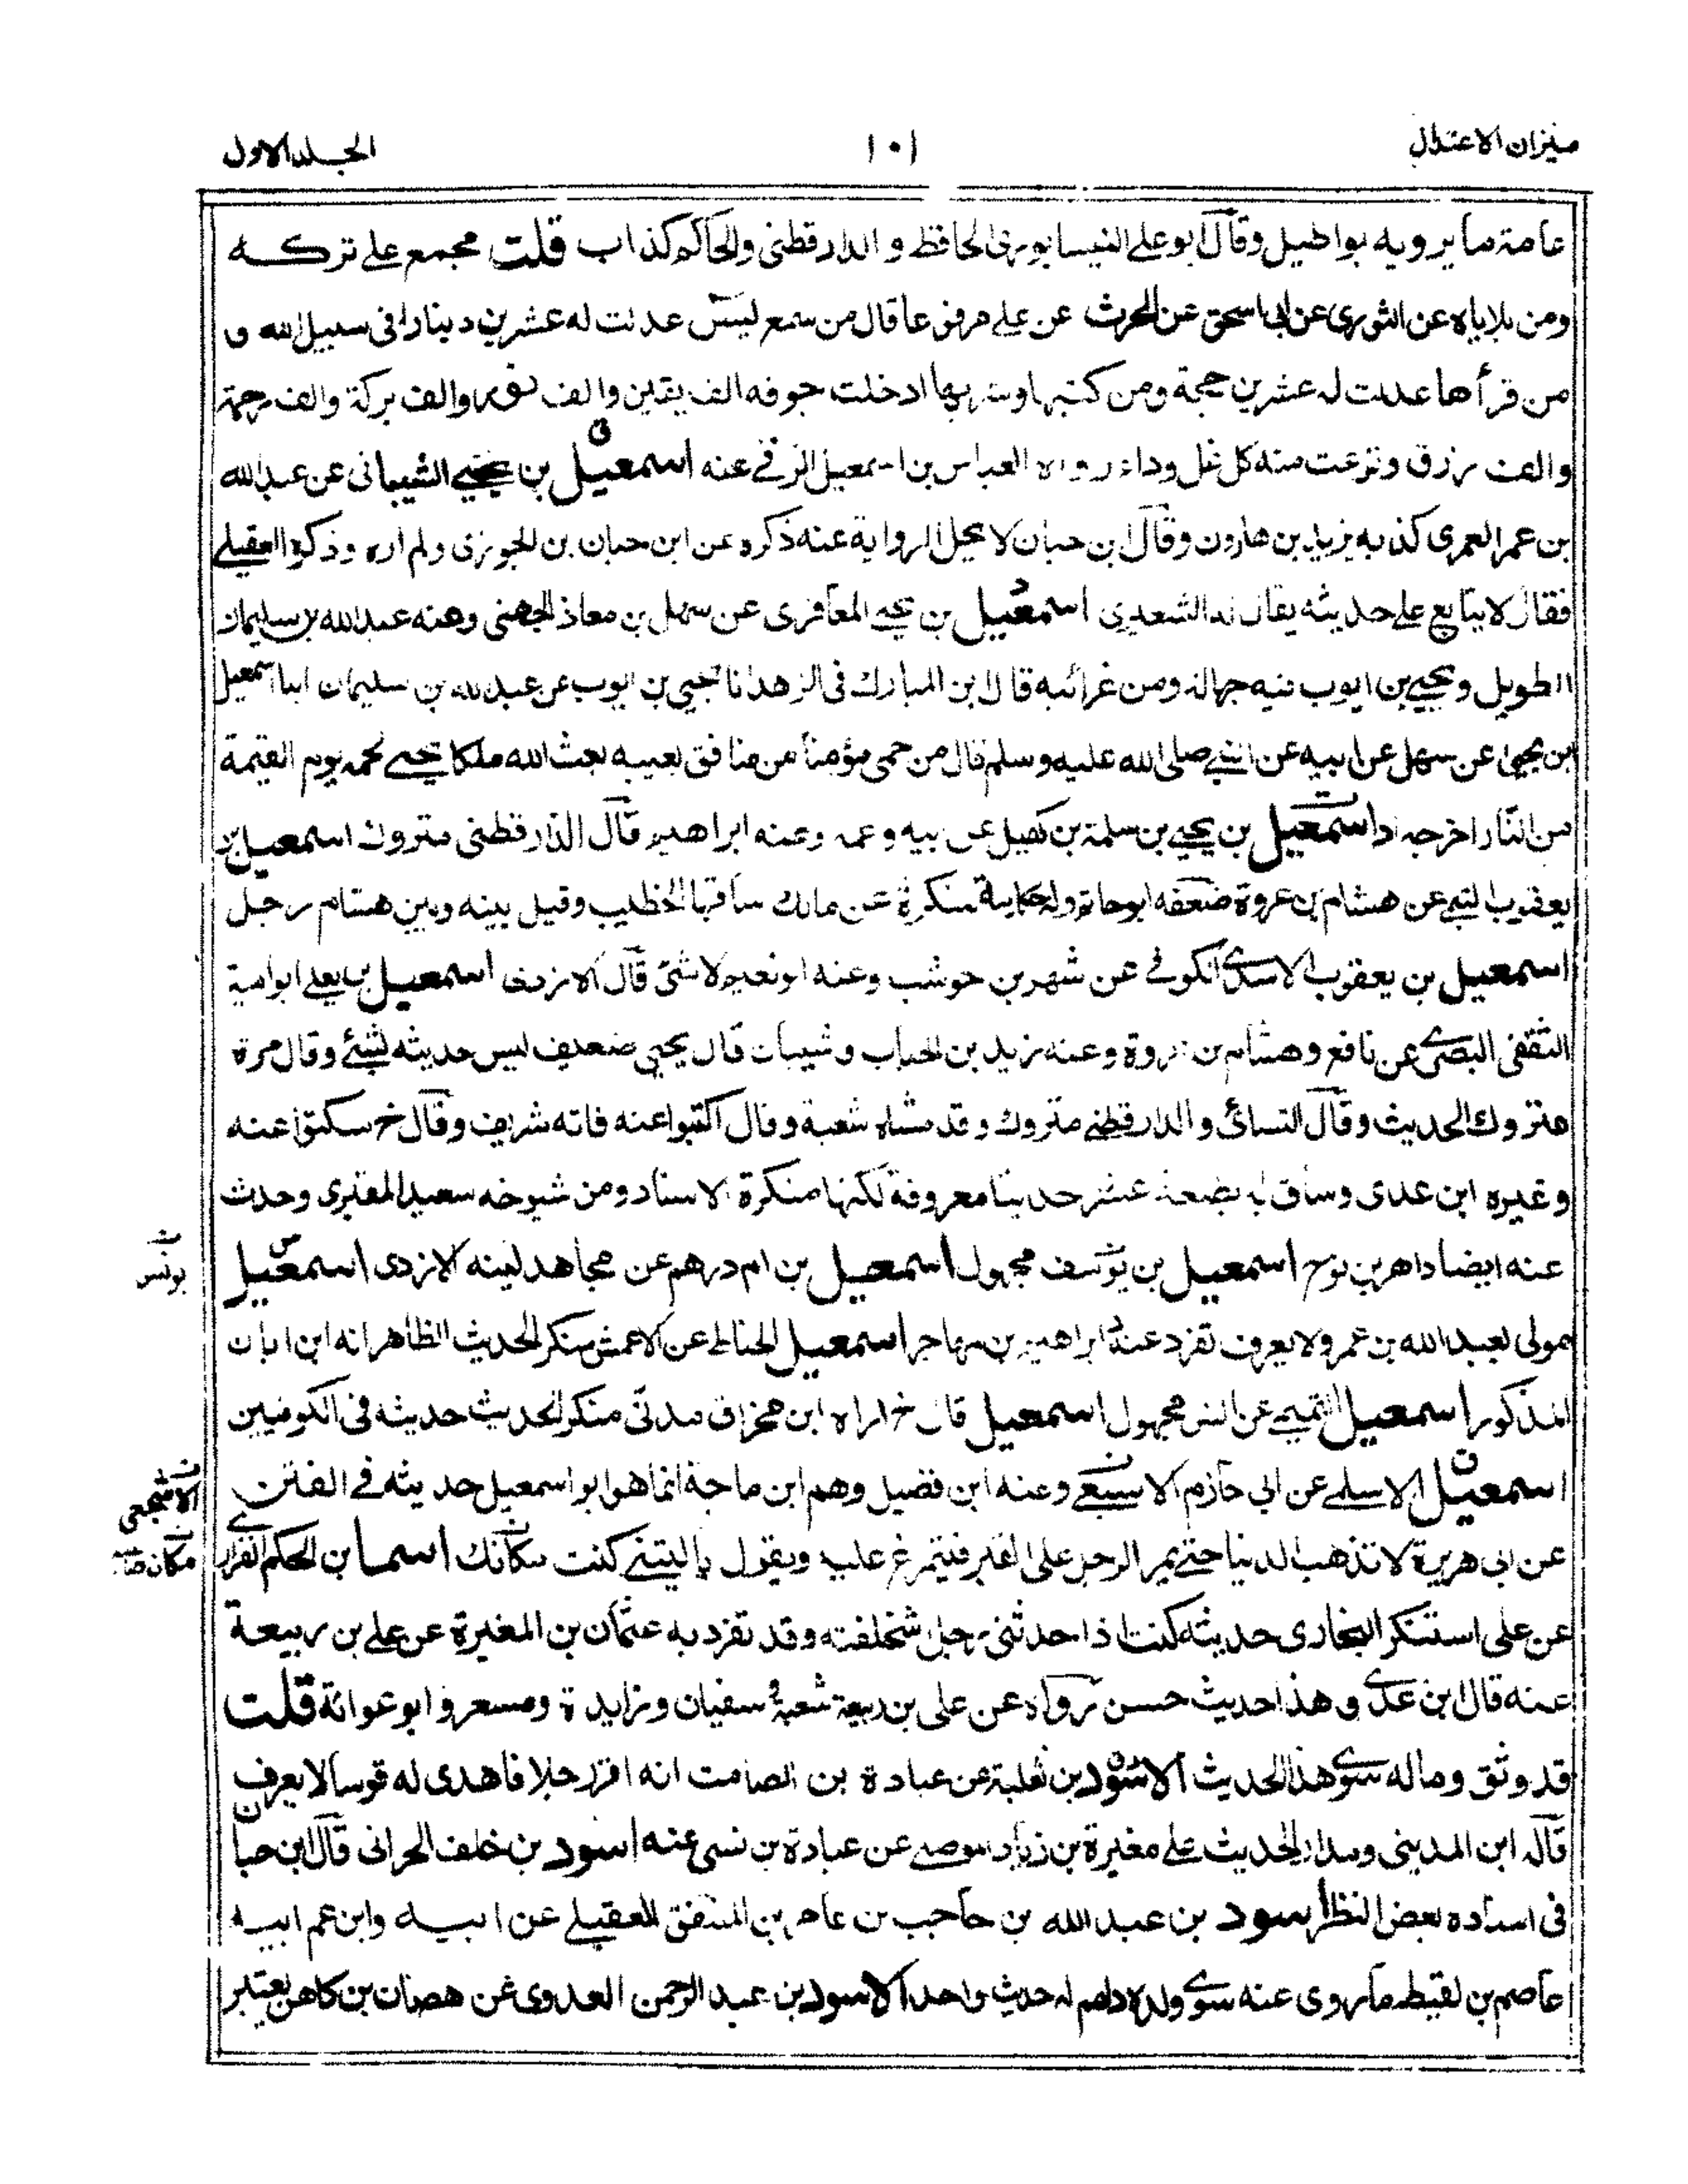 ميزان الاعتدال
١٠١
الجلد الاول
عامة ما يرويه بواطيل وقال ابو علي النيسابوري الحافظ و الدارقطني والحاكم كذاب قلت مجمع علے تركه
ومن بلاياه عن الثوري عن ابي اسحق عن الحرث عن علي مرفوعا قال من سمع ليس عدلت له عشرين دينارا في سبيل الله و
من قرأها عدلت له عشرين حجة ومن كتبها وشربها ادخلت جوفه الف يقين والف نور والف بركة والف رحمة
والف رزق ونزعت منه كل غل وداء رواه العباس بن اسمعيل الرقي عنه اسمعيل بن يحيي الشيباني عن عبد الله
بن عمر العمري كذبه يزيد بن هارون وقال ابن حبان لا يحل الرواية عنه ذكره عن ابن حبان بن الجوزي ولم اره وذكره العقيلے
فقال لا يتابع علے حديثه يقال له الشعيري اسمعيل بن يحيے المعافري عن سهل بن معاذ الجهني وعنه عبد الله بن سليمان
الطويل و يحيي بن ايوب فيه جهالة ومن غرائبه قال ابن المبارك في الزهد انا يحيي بن ايوب عن عبد الله بن سليمان ان اسمعيل
بن يحيى عن سهل عن ابيه عن النبي صلى الله عليه وسلم قال من حمى مؤمنا من منافق بعيبه بعث الله ملكا يحمي لحمه يوم القيمة
من النار اخرجه د اسمعيل بن يحيے بن سلمة بن كهيل عن ابيه وعمه وعنه ابراهيم قال الدارقطني متروك اسمعيل بن
يعقوب التيمي عن هشام بن عروة ضعفه ابو حاتم وله حكاية منكرة عن مالك ساقها الخطيب وقيل بينه وبين هشام رجل
اسمعيل بن يعقوب الاسدي الكوفے عن شهر بن حوشب وعنه ابو نعيم لا شئ قال الازدي اسمعيل بن يعلے ابو امية
الثقفي البصري عن نافع وهشام بن عروة وعنه زيد بن الحباب وشيبان قال يحيي ضعيف ليس حديثه بشئ وقال مرة
متروك الحديث وقال النسائي و الدارقطني متروك وقد مشاه شعبة وقال اكتبوا عنه فانه شريف وقال خ سكتوا عنه
وغيره ابن عدى وساق له بضعة عشر حديثا معروفة لكنها منكرة الاسناد ومن شيوخه سعيد المقبري وحدث
عنه ايضا داهر بن نوح اسمعيل بن يوسف مجهول اسمعيل بن ام درهم عن مجاهد لينه الازدى اسمعيل
يونس
مولى لعبد الله بن عمرو لا يعرف تفرد عنه ابراهيم بن مهاجر اسمعيل الحناط عن الاعمش منكر الحديث الظاهر انه ابن ابان
المذكور اسمعيل التميمي عن انس مجهول اسمعيل قال خ اراه ابن مخراق مدني منكر الحديث حديثه في الكوفيين
اسمعيل الاسلمے عن ابي حازم الاشجعے وعنه ابن فضيل وهم ابن ماجة انما هو ابو اسمعيل حديثه في الفتن
الاشجعي
عن ابي هريرة لا تذهب الدنيا حتى يمر الرجل على القبر فيتمرغ عليه ويقول يا ليتني كنت مكانك اسما بن الحكم الفزاري
مكان
عن علي استنكر البخاري حديثه كنت اذا حدثني رجل استحلفته وقد تفرد به عثمان بن المغيرة عن علي بن ربيعة
عنه قال ابن عدي و هذا حديث حسن رواه عن علي بن ربيعة شعبة و سفيان وزايدة ومسعر وابو عوانة قلت
قد وثق وماله سوى هذا الحديث الاسود بن ثعلبة عن عبادة بن الصامت انه اقرأ رجلا فاهدى له قوسا لا يعرف
قاله ابن المديني ومدار الحديث علے مغيرة بن زياد الموصلے عن عبادة بن نسي عنه اسود بن خلف الحراني قال ابن حبان
في اسناده بعض النظر اسود بن عبد الله بن حاجب بن عامر بن المنتفق العقيلے عن ابيه وابن عم ابيه
عاصم بن لقيط ما روى عنه سوى ولده دلهم له حديث واحد الاسود بن عبد الرحمن العدوى عن هصان بن كاهن يعتبر